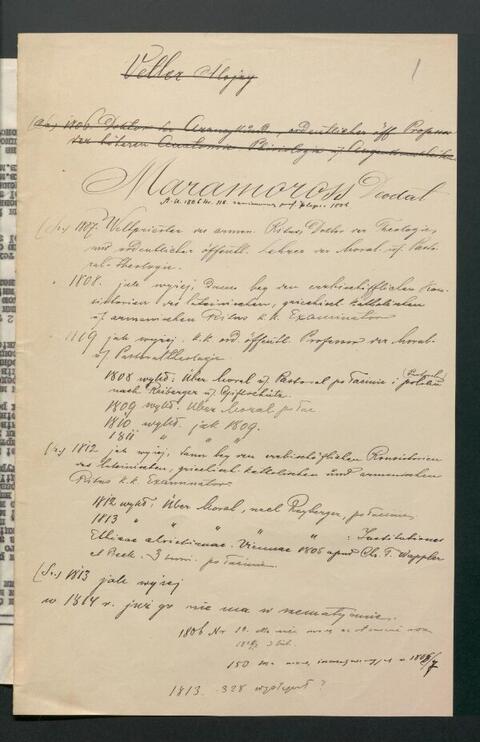 Veller Alojzy
1
1806 Doktor der Arzneykunde, ordentlicher öff. Professor
der höheren Anatomie Phisiologie
Maramoross Deodat
1807. Weltpriester des armen. Ritus, Doktor der Theologie,
und ordentlicher öffentl. Lehrer der Moral u. Pasto-
ral-theologie.
1808. jak wyżej, dann bey den erzbischöflichen Kon-
sistorien des lateinischen, griechisch katholischen
u. armenischen Ritus k.k. Examinator
1109 jak wyżej. k.k. ord. öffentl. Professor der Moral
u. Pastoraltheologie
1808 wykł. Über Moral u. Pastoral po łacinie i polsku
nach Reiberger u. Giftschütz.
1809 wykł. Über Moral po łac
1810 wykł. jak 1809.
1811 " " "
1812 jak wyżej, dann bey den erzbischöflichen Konsistorien
des lateinischen, griechisch-katholischen und armenischen
Ritus k.k. Examinator
1812 wykł. Über Moral, nach Reyberger, po łacinie
1813 " " " " : Institutiones
Ethicae christianae. Viennae 1805 apud Ch. F. Wappler
et Beck. 3 tomi. po łacinie.
1813 jak wyżej
w 1814 r. już go nie ma w schematyzmie.
1806 Nr 19.
150
1813. 328